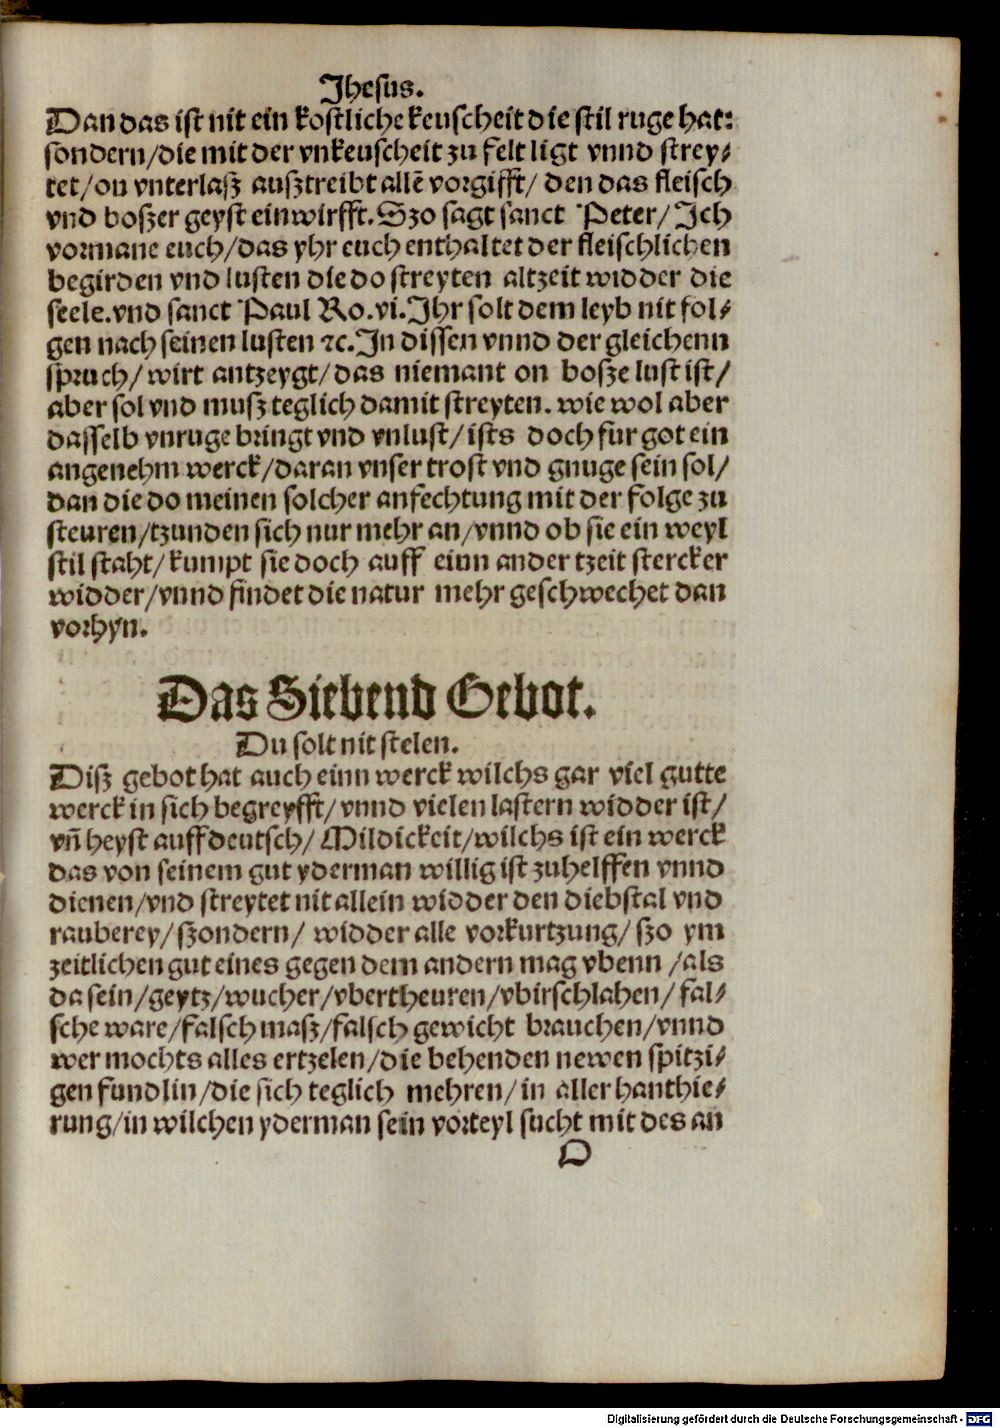 Jhesus.
Dan das ist nit ein kostliche keuscheit die stil ruge hat:
sondern/die mit der vnkeuscheit zu felt ligt vnnd strey⸗
tet/on vnterlasz ausztreibt allē vorgifft/ den das fleisch
vnd boszer geyst einwirfft. Szo sagt sanct Peter/ Jch
vormane euch/das yhr euch enthaltet der fleischlichen
begirden vnd lusten die do streyten altzeit widder die
seele. vnd sanct Paul Ro. vi. Jhr solt dem leyb nit fol⸗
gen nach seinen lusten ꝛc. Jn dissen vnnd der gleichenn
spruch/ wirt antzeygt/ das niemant on bosze lust ist/
aber sol vnd musz teglich damit streyten. wie wol aber
dasselb vnruge bringt vnd vnlust/ ists doch fur got ein
angenehm werck/daran vnser trost vnd gnuge sein sol/
dan die do meinen solcher anfechtung mit der folge zu
steuren/tzunden sich nur mehr an/vnnd ob sie ein weyl
stil staht/ kumpt sie doch auff einn ander tzeit stercker
widder/vnnd findet die natur mehr geschwechet dan
vorhyn.
Das Siebend Gebot.
Du solt nit stelen.
Disz gebot hat auch einn werck wilchs gar viel gutte
werck in sich begreyfft/ vnnd vielen lastern widder ist/
vn̄ heyst auff deutsch/ Mildickeit/wilchs ist ein werck
das von seinem gut yderman willig ist zuhelffen vnnd
dienen/vnd streytet nit allein widder den diebstal vnd
rauberey/ szondern/ widder alle vorkurtzung/ szo ym
zeitlichen gut eines gegen dem andern mag vbenn /als
da sein/geytz/wucher/vbertheuren/vbirschlahen/ fal⸗
sche ware/falsch masz/falsch gewicht brauchen/vnnd
wer mochts alles ertzelen/die behenden newen spitzi⸗
gen fundlin/die sich teglich mehren/ in aller hanthie⸗
rung/in wilchen yderman sein vorteyl sucht mit des an
D
Digitalisierung gefördert durch die Deutsche Forschungsgemeinschaft - DFG